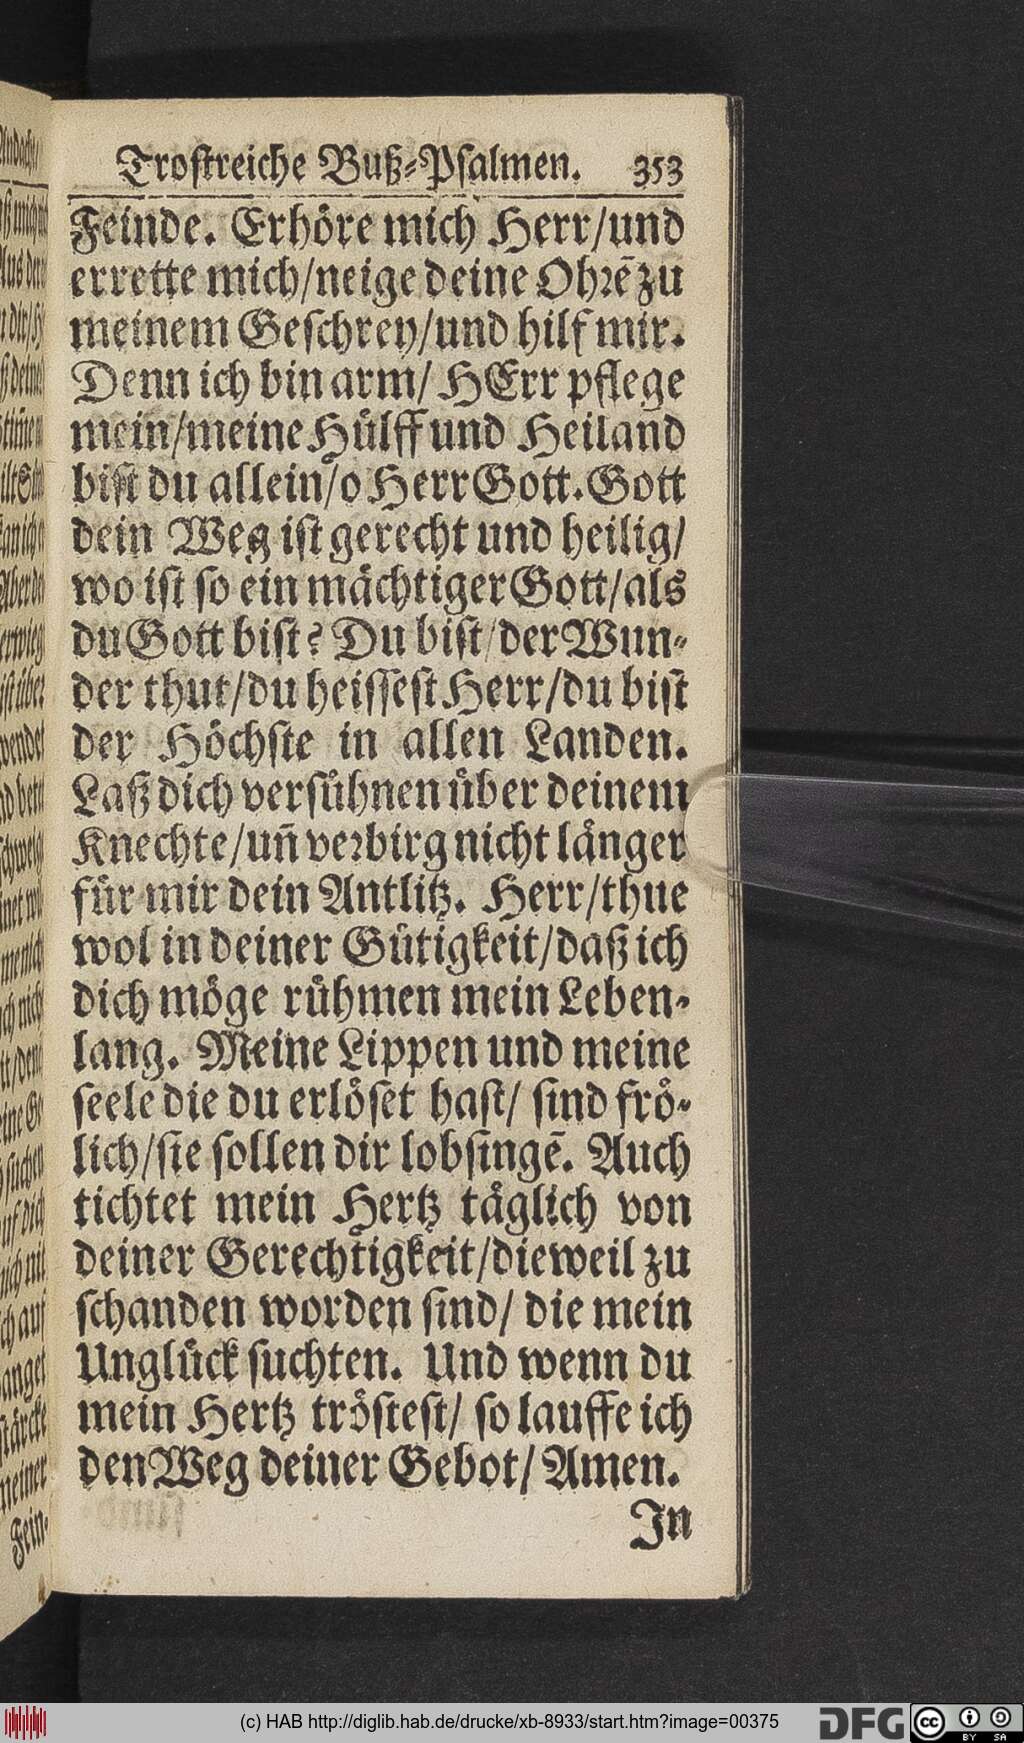 Trostreiche Buß-Psalmen. 353
Feinde. Erhöre mich Herr/und
errette mich/neige deine Ohrē zu
meinem Geschrey/und hilf mir.
Denn ich bin arm/ HErr pflege
mein/meine Hülff und Heiland
bist du allein/o Herr Gott. Gott
dein Weg ist gerecht und heilig/
wo ist so ein mächtiger Gott/als
du Gott bist? Du bist/der Wun-
der thut/du heissest Herr/du bist
der Höchste in allen Landen.
Laß dich versühnen über deinem
Knechte/uñ verbirg nicht länger
für mir dein Antlitz. Herr/thue
wol in deiner Gütigkeit/daß ich
dich möge rühmen mein Leben-
lang. Meine Lippen und meine
seele die du erlöset hast/ sind frö-
lich/sie sollen dir lobsingē. Auch
tichtet mein Hertz täglich von
deiner Gerechtigkeit/dieweil zu
schanden worden sind/ die mein
Unglück suchten. Und wenn du
mein Hertz tröstest/ so lauffe ich
den Weg deiner Gebot/ Amen.
In
(c) HAB http://diglib.hab.de/drucke/xb-8933/start.htm?image=00375
DFG
cc BY SA